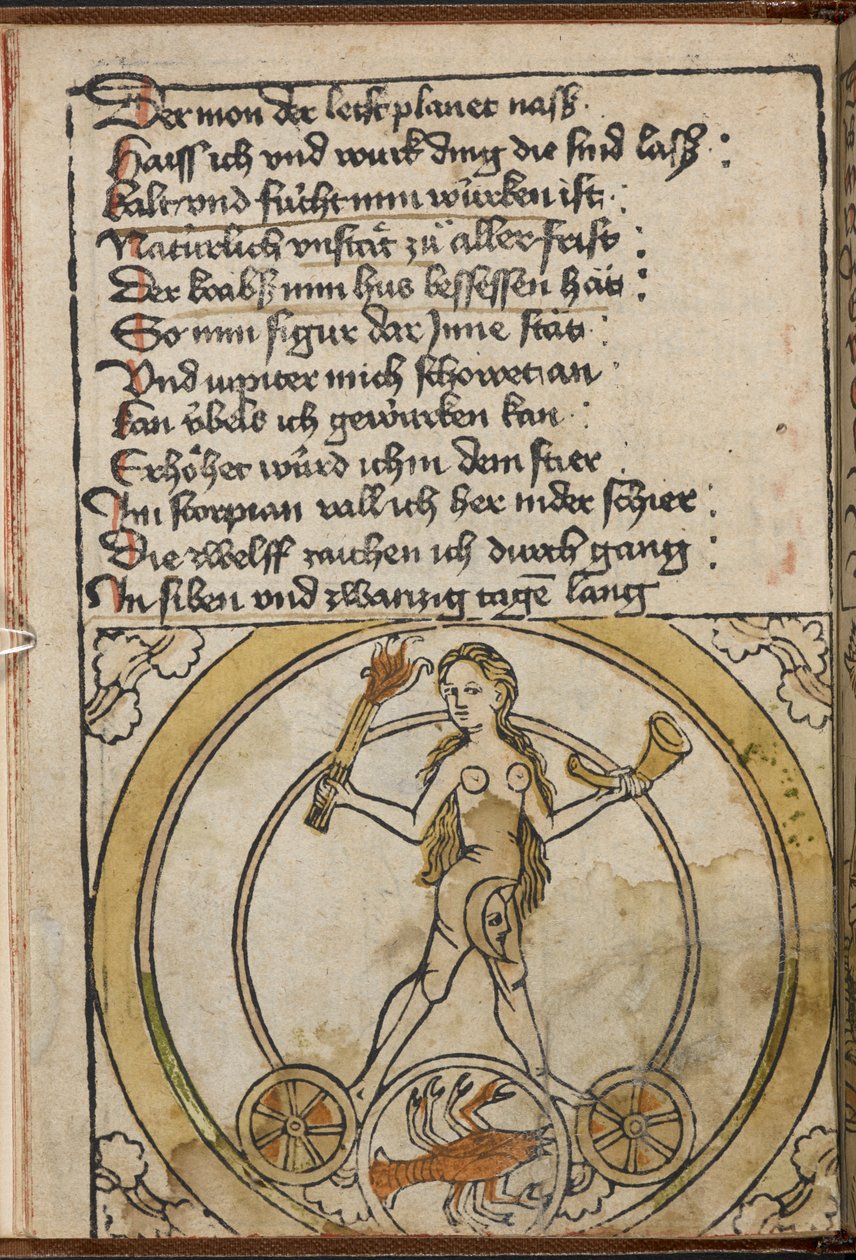 Der mon der letst planet nasß.
Haiss ich vnd wurk ding die sind lasß :
kalt vnd fücht min würken ist :
Natürlich vnstät zů aller frist :
Der krebß min hus bessessen hät :
So min figur dar Inne stät :
Vnd iupiter mich schowet an
kan v̈bels ich gewürken kan :
Erhöhet würd ich in dem stier :
Im scorpian vall ich her nider schier :
Die zwelff zaichen ich durch gang :
In siben vnd zwanzig tagē lang